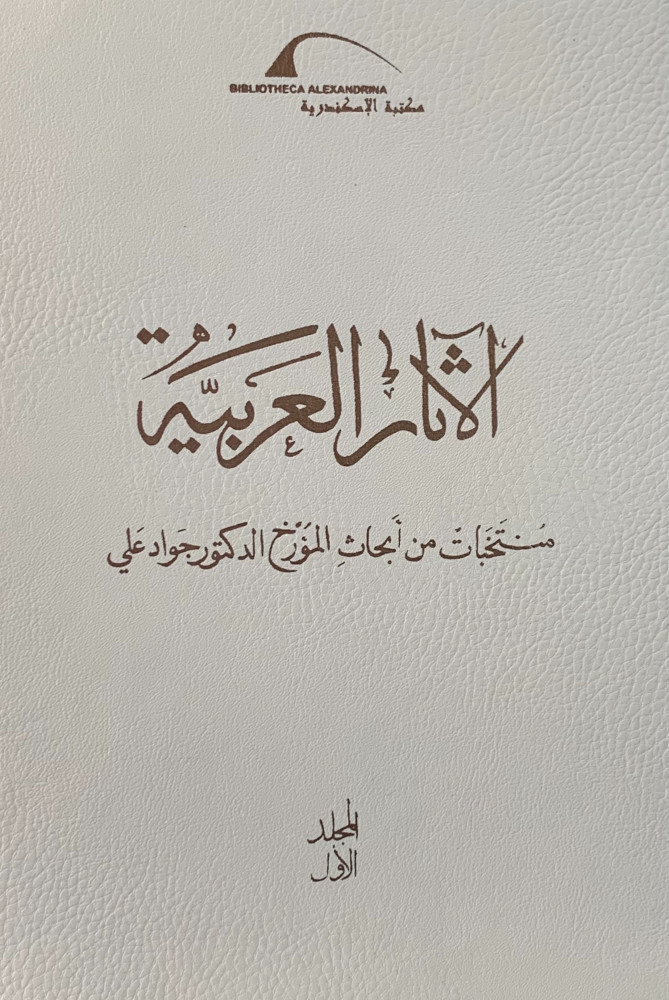 BIBLIOTHECA ALEXANDRINA
مكتبة الإسكندرية
الآثار العربيّة
مُنتَخَبَاتٌ من أَبحاثِ المؤرّخ الدكتور جَواد عَلي
المجلد
الأول